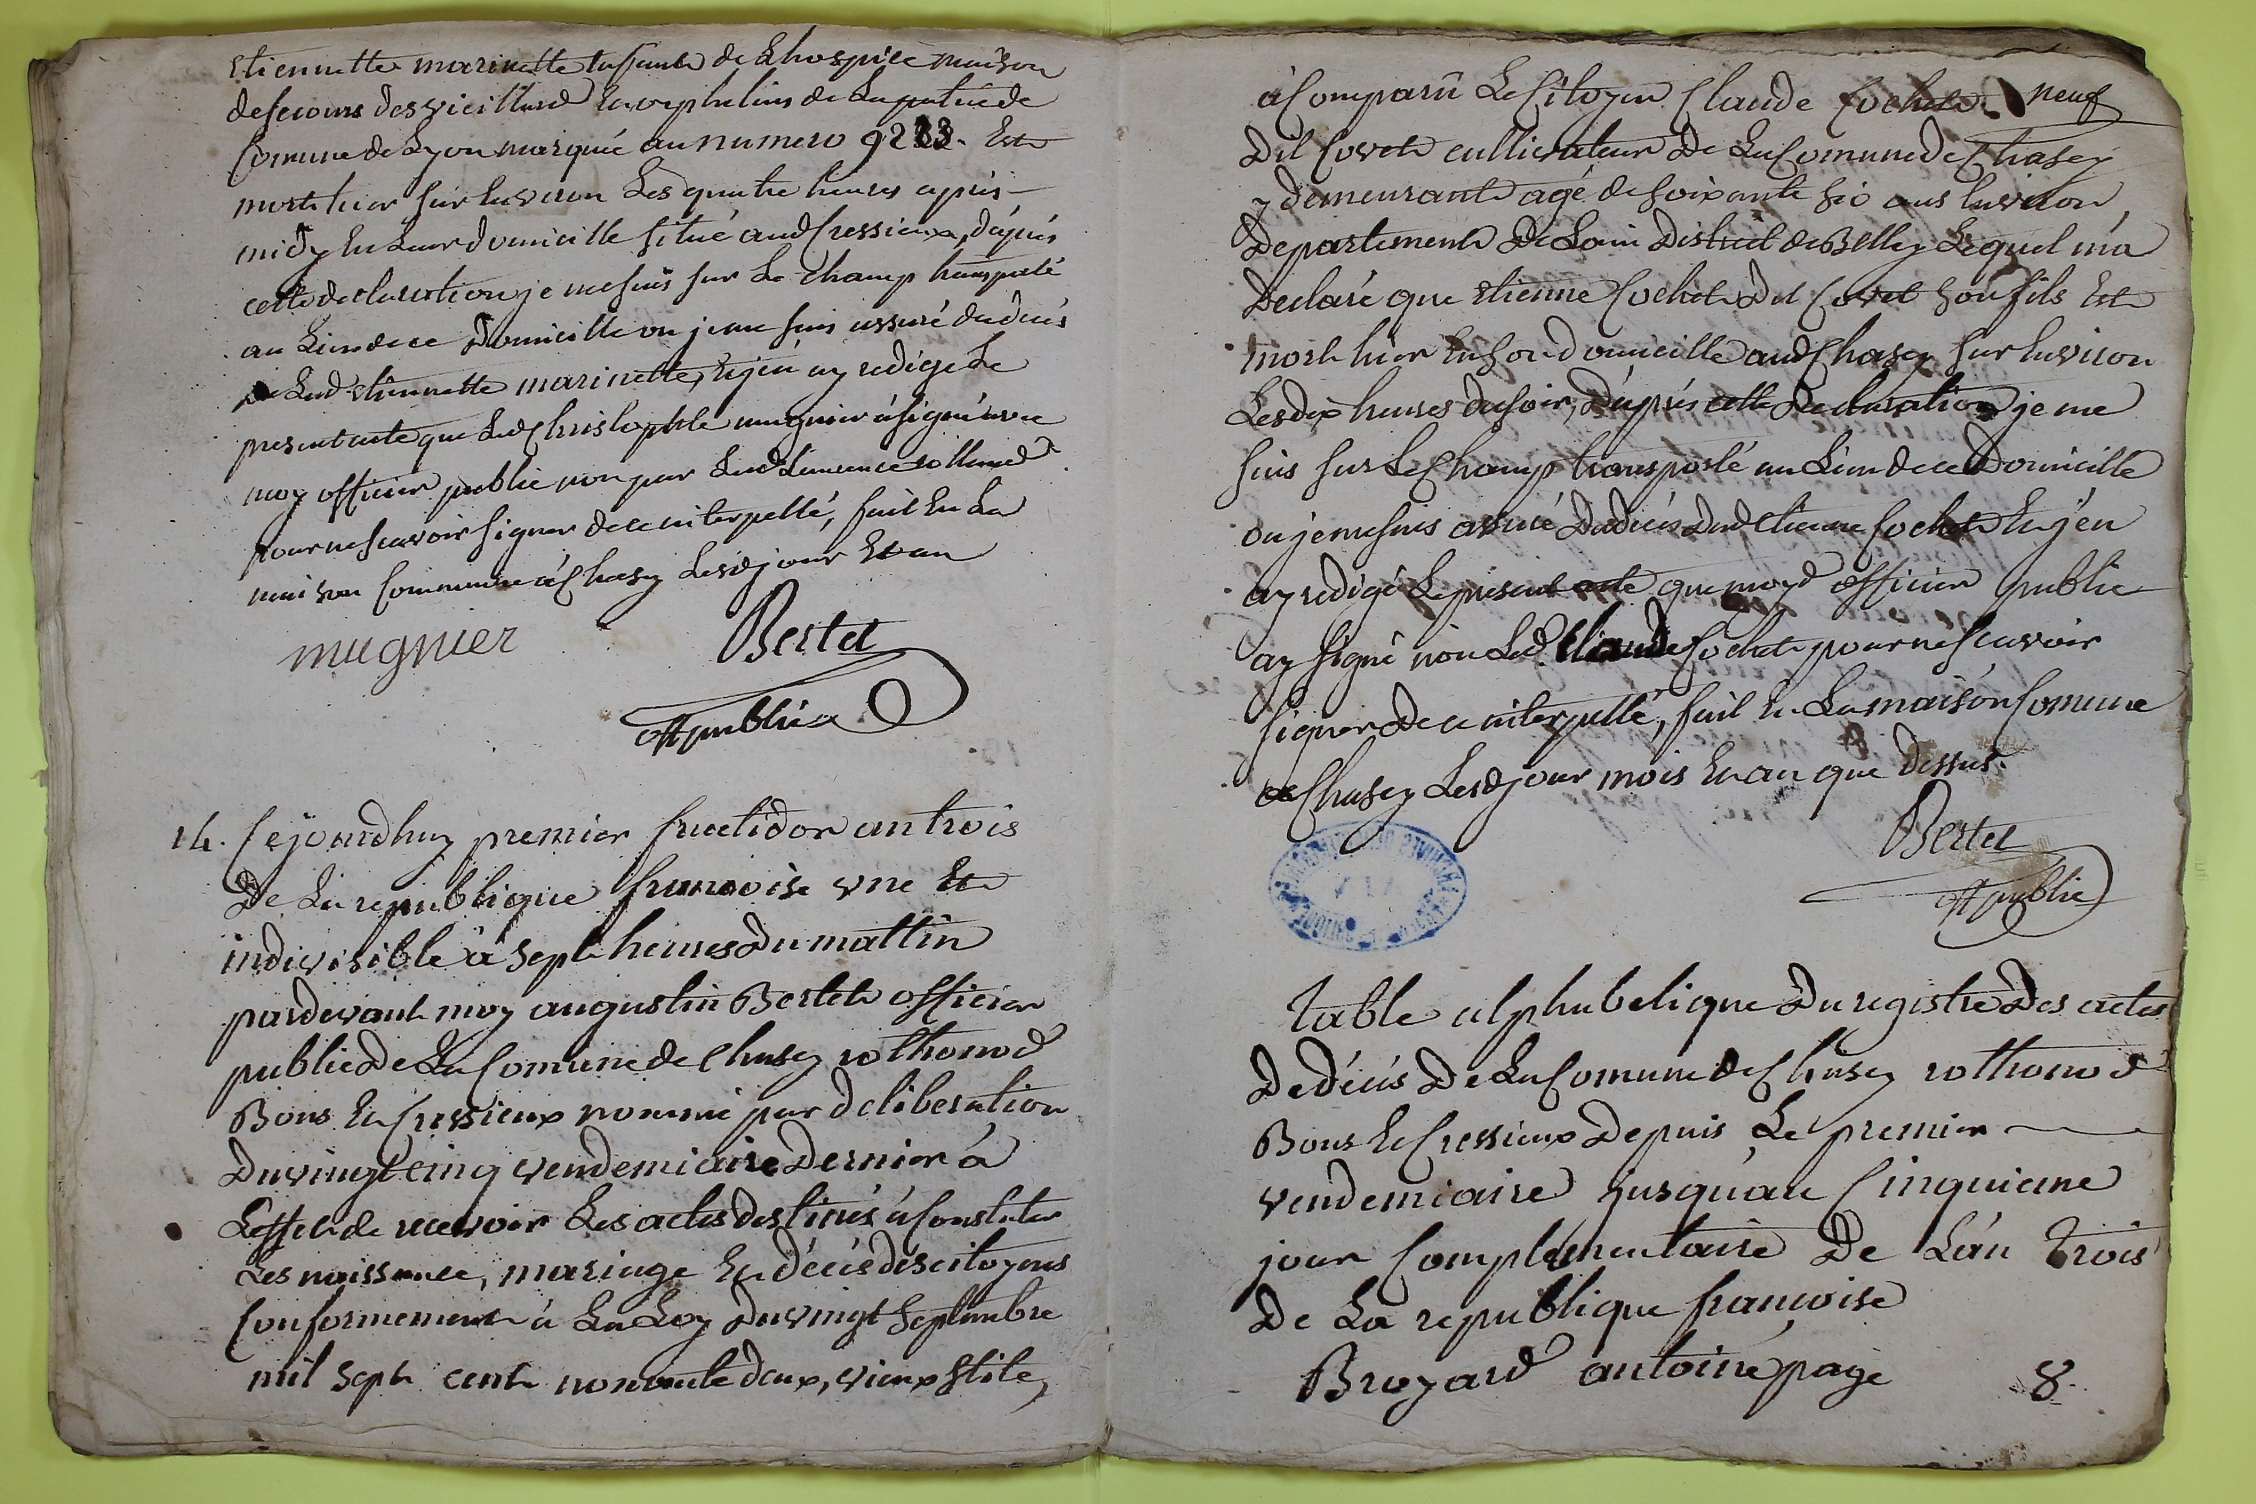 Etiennette marinette enfant de Lhospice maison
desecours des vieillard Et orphelins de Lapatrie de
Comune de Lyon marqué au numero 9283. Est
morte hier sur Environ Les quatre heures après
midy En Leur domicille situé aud Cressieux, d'apres
cette declaration je me suis sur Le champ transporté
au Lieu de ce Domicille ou je me suis assuré du décés
de Lad Etiennette marinette, Et jén ay redigé Le
present acte que Led Christophle mugnier à signé avec
moy officier public non par Lad Laurence
pour ne scavoir signer de ce interpellé, fait En La
maison Commune à Chasey Lesd jour Et an
mugnier Bertet
off public
14. Cejourdhuy premier fructidor an trois
De La republique francoise vne Et
indivisible à Sept heures Du mattin
pardevant moy augustin Bertet officier
public De La Comune de Chasey rothonod
Bons Et Cressieux nommé par deliberation
Du vingt cinq vendemiaire Dernier à
Leffet de recevoir Les actes destinés à Constater
Les naissance, mariage Et décés des citoyens
Conformement à La Loy Du vingt Septembre
mil Sept cent nonante deux, vieux stile,
neuf
à Comparû Le Citoyen Claude Cochet
Dit Covet cultivateur De La Comune de Chasey
y demeurant agé de soixante six ans Environ
Departement De Lain District de Belley Lequel m'a
Declaré que Etienne Cochet Dit Covet son fils Est
mort hier En son domicille aud Chasey sur Environ
Les dix heures du soir, D'après cette Declaration je me
suis sur Le Champ transporté au Lieu de ce Domicille
ou je me suis assuré Du décés Dud Etienne Cochet Et j'en
ay redigé Le present acte que moyd officier public
ay signé non Led. Claude Cochet pour ne scavoir
signer De ce interpellé, fait En La maison Comune
de Chasey Lesd jour mois Et an que dessus.
Bertet
off public
Table alphabetique Du registre Des actes
De décés De La Comune De Chasey rothonod
Bons Et Cressieux Depuis Le premier
vendemiaire jusqu'au Cinquieme
jour Complementaire De Lán Trois
De La republique françoise
Broyard antoine page 8.